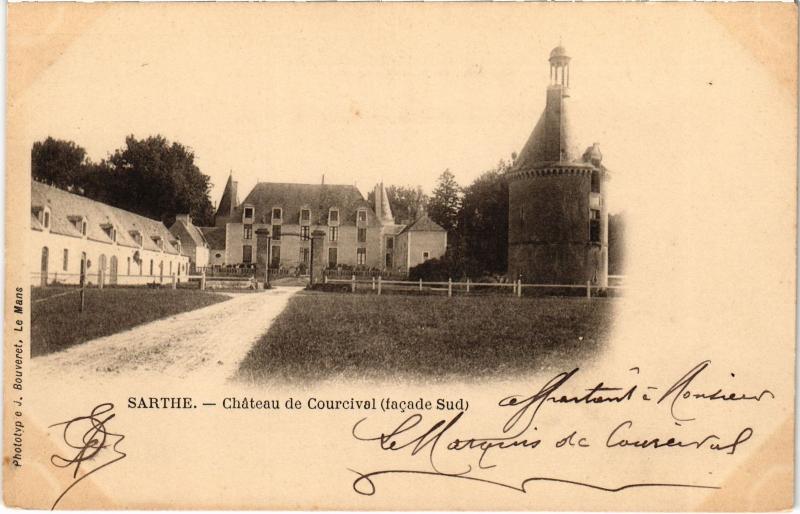 Phototypie J. Bouveret, Le Mans
SARTHE. — Château de Courcival (façade Sud)
appartent à Monsieur
Le Marquis de Courcival